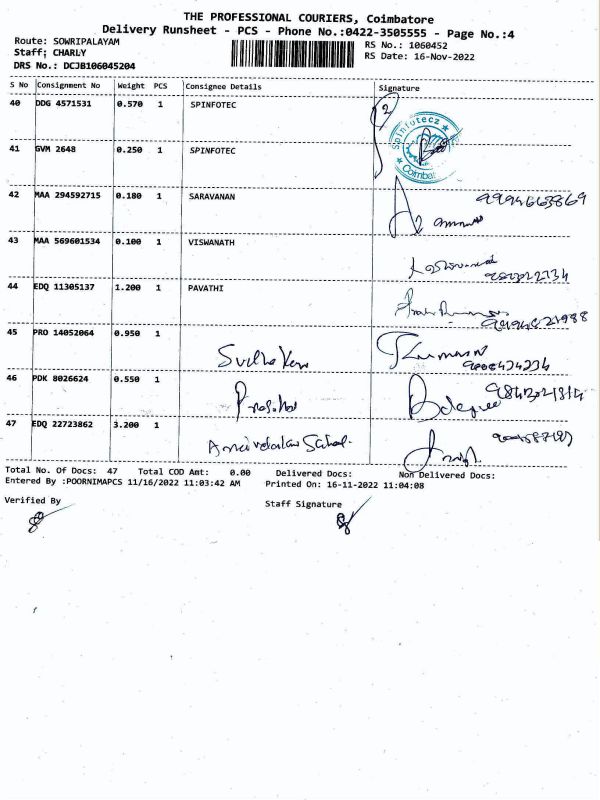 THE PROFESSIONAL COURIERS, Coimbatore
Delivery Runsheet - PCS - Phone No.:0422-3505555 - Page No.:4
Route: SOWRIPALAYAM
Staff; CHARLY
DRS No.: DCJB106045204
RS No.: 1060452
RS Date: 16-Nov-2022
S No Consignment No Weight PCS Consignee Details Signature
40 DDG 4571531 0.570 1 SPINFOTEC
2
Spinfotecz
Coimbat
41 GVM 2648 0.250 1 SPINFOTEC
42 MAA 294592715 0.180 1 SARAVANAN
43 MAA 569601534 0.100 1 VISWANATH
44 EDQ 11305137 1.200 1 PAVATHI
45 PRO 14052064 0.950 1
46 PDK 8026624 0.550 1
47 EDQ 22723862 3.200 1
Total No. Of Docs: 47 Total COD Amt: 0.00 Delivered Docs: Non Delivered Docs:
Entered By :POORNIMAPCS 11/16/2022 11:03:42 AM Printed On: 16-11-2022 11:04:08
Verified By Staff Signature